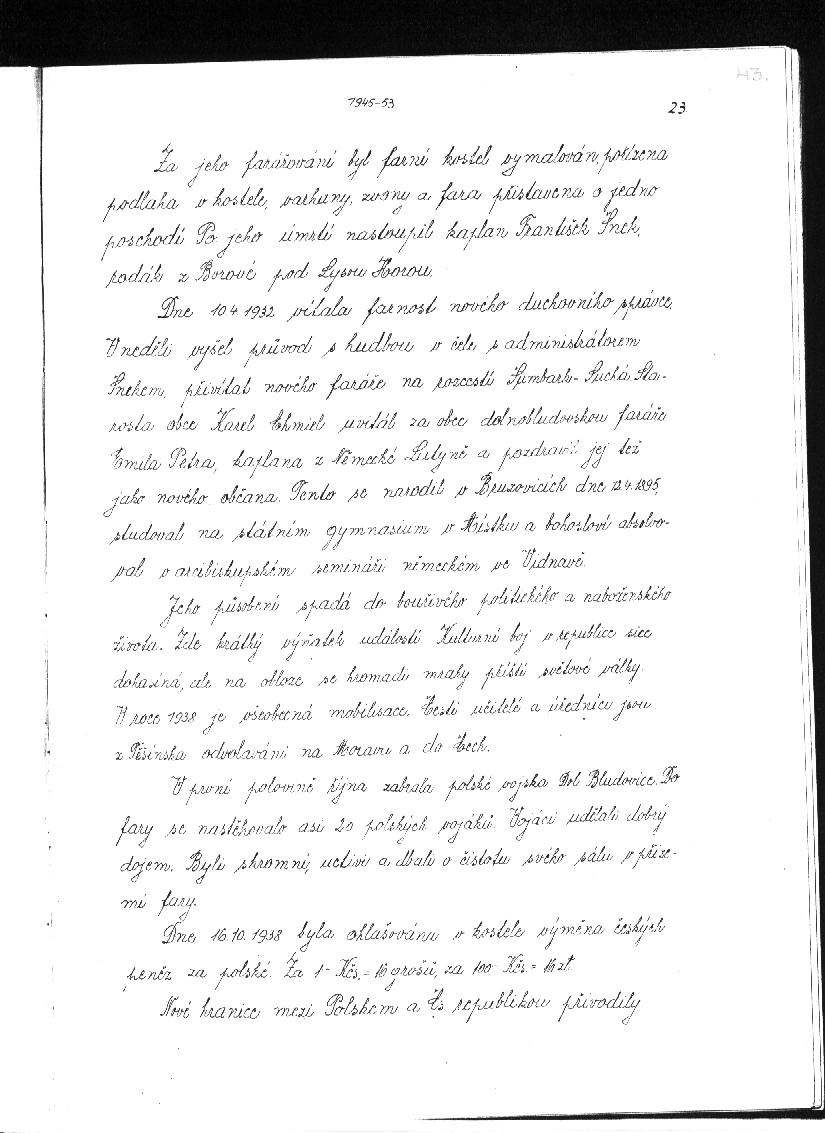 43.
1945-53
23
Za jeho farářování byl farní kostel vymalován, pořízena
podlaha v kostele, varhany, zvony a fara přistavena o jedno
poschodí Po jeho úmrtí nastoupil kaplan František Šnek,
rodák z Borové pod Lysou Horou.
Dne 10.4.1932 vítala farnost nového duchovního správce.
V neděli vyšel průvod s hudbou v čele s administrátorem
Šnekem, přivítat nového faráře na rozcestí Šumbark-Suchá. Sta-
rosta obce Karel Chmiel uvítal za obec dolnobludovskou faráře
Emila Petra, kaplana z Německé Lutyně a pozdravil jej též
jako nového občana. Tento se narodil v Bruzovicích dne 13.4.1895,
studoval na státním gymnasium v Místku a bohosloví absolvo-
val v arcibiskupském semináři německém ve Vidnavě.
Jeho působení spadá do bouřlivého politického a naboženského
života. Zde krátký výňatek událostí Kulturní boj v republice sice
dohasíná, ale na obloze se hromadí mraky příští světové války.
V roce 1938 je všeobecná mobilisace. Čestí učitelé a úředníci jsou
z Těšínska odvolaváni na Moravu a do Čech.
V první polovině října zabrala polské vojska Dol. Bludovice. Do
fary se nastěhovalo asi 20 polských vojáků. Vojáci udělali dobrý
dojem. Byli skromní, uctiví a dbali o čistotu svého sálu v příze-
mí fary.
Dne 16.10.1938 byla ohlašována v kostele výměna českých
peněz za polské. Za 1- Kčs.= 16 grošů, za 100- Kčs.= 16 zł.
Nové hranice mezi Polskem a Čs. republikou přivodily